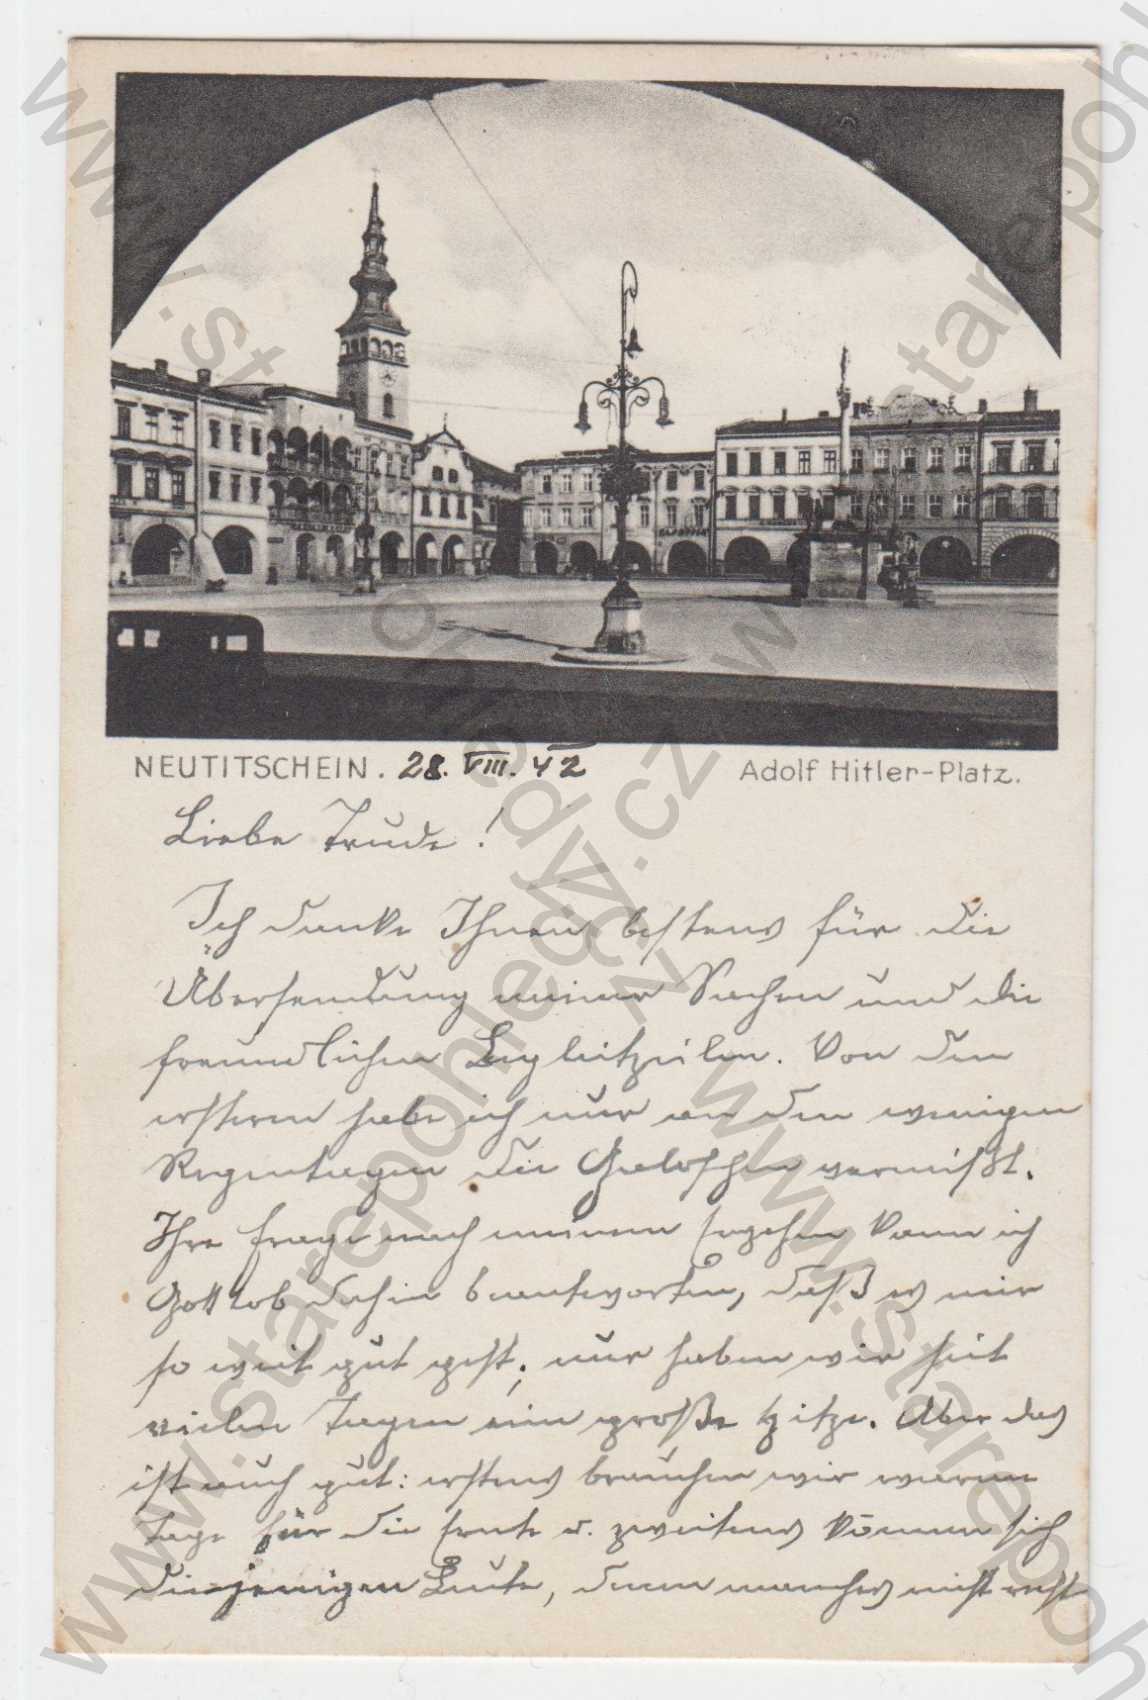 NEUTITSCHEIN. 28. VIII. 42 Adolf Hitler-Platz.
Liebe Trude!
Ich danke Ihnen bestens für die
Übersendung meiner Sachen und die
freundlichen Begleitzeilen. Von den
ersteren habe ich nur an den wenigen
Regentagen die Galoschen vermißt.
Ihre Frage nach meinem Ergehen kann ich
Gottlob dahin beantworten, daß es mir
so weit gut geht; nur haben wir seit
vielen Tagen eine große Hitze. Aber das
ist auch gut: erstens brauchen wir warme
Tage für die Ernte u. zweitens können sich
diejenigen Leute, denen manches nicht recht
www.starepohledy.cz
www.starepohledy.cz